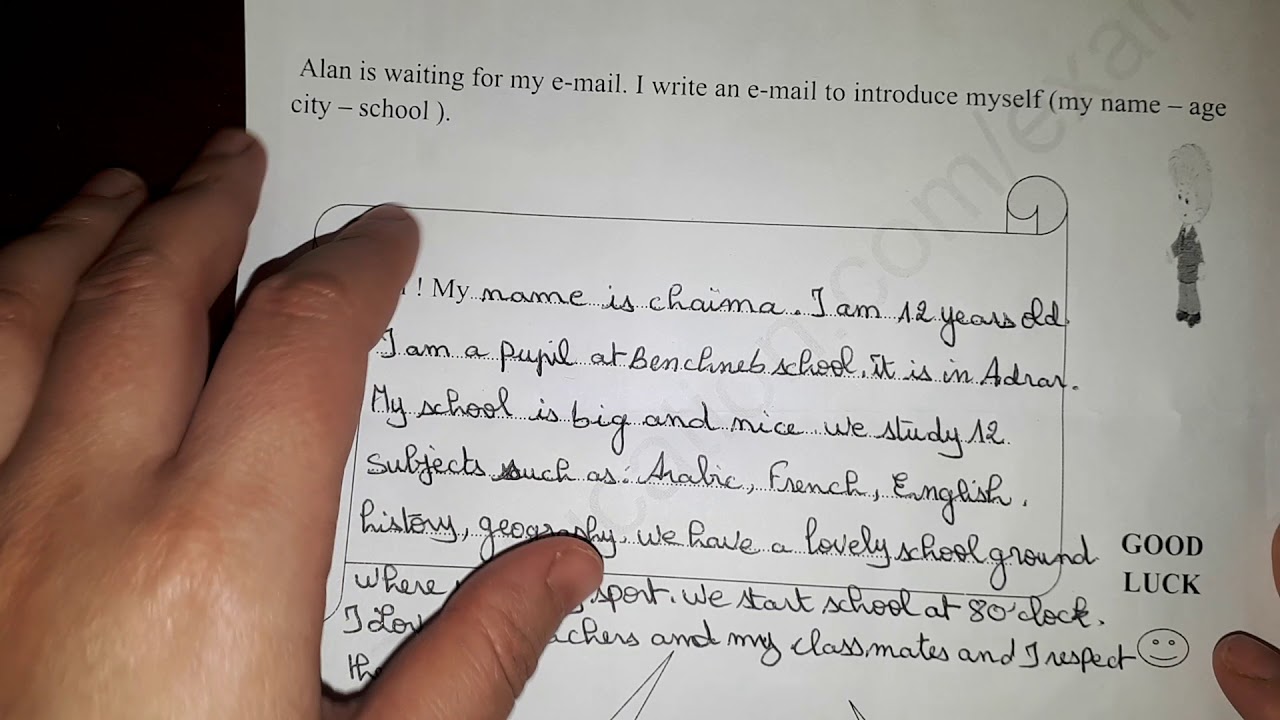 Alan is waiting for my e-mail. I write an e-mail to introduce myself (my name – age
city – school ).
! My name is chaïma. I am 12 years old
I am a pupil at Benchneb school, it is in Adrar.
My school is big and nice we study 12
subjects such as: Arabic, French, English.
history, geography. we have a lovely school ground
GOOD
LUCK
where sport. We start school at 8 O'clock.
I and my classmates and I respect